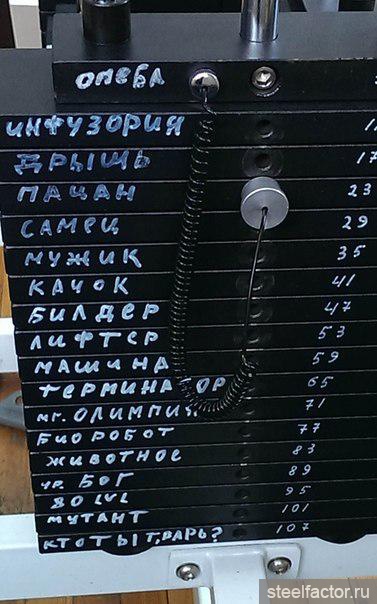 ОМЕБА
ИНФУЗОРИЯ
ДРЫЩЬ 17
ПАЦАН 23
САМЕЦ 29
МУЖИК 35
КАЧОК 41
БИЛДЕР 47
ЛИФТЕР 53
МАШИНА 59
ТЕРМИНАТОР 65
МГ. ОЛИМПИЯ 71
БИОРОБОТ 77
ЖИВОТНОЕ 83
УР. БОГ 89
80 LVL 95
МУТАНТ 101
КТО ТЫ Т,ВАРЬ? 107
steelfactor.ru